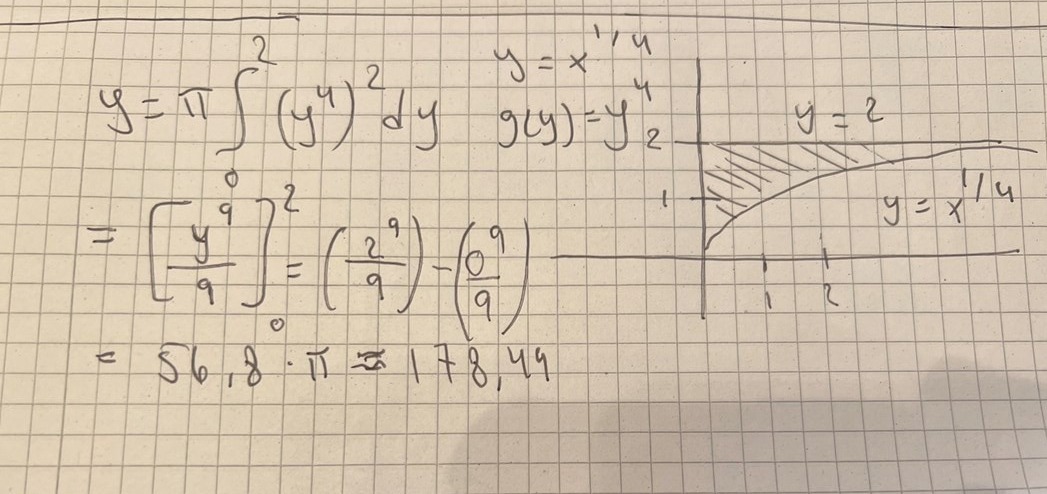 y = π ∫₀² (y⁴)² dy
y = x^1/4
g(y) = y⁴
= [y⁹/9]₀² = (2⁹/9) - (0⁹/9)
= 56,8 · π = 178,49
y = 2
2
1
y = x^1/4
1 2